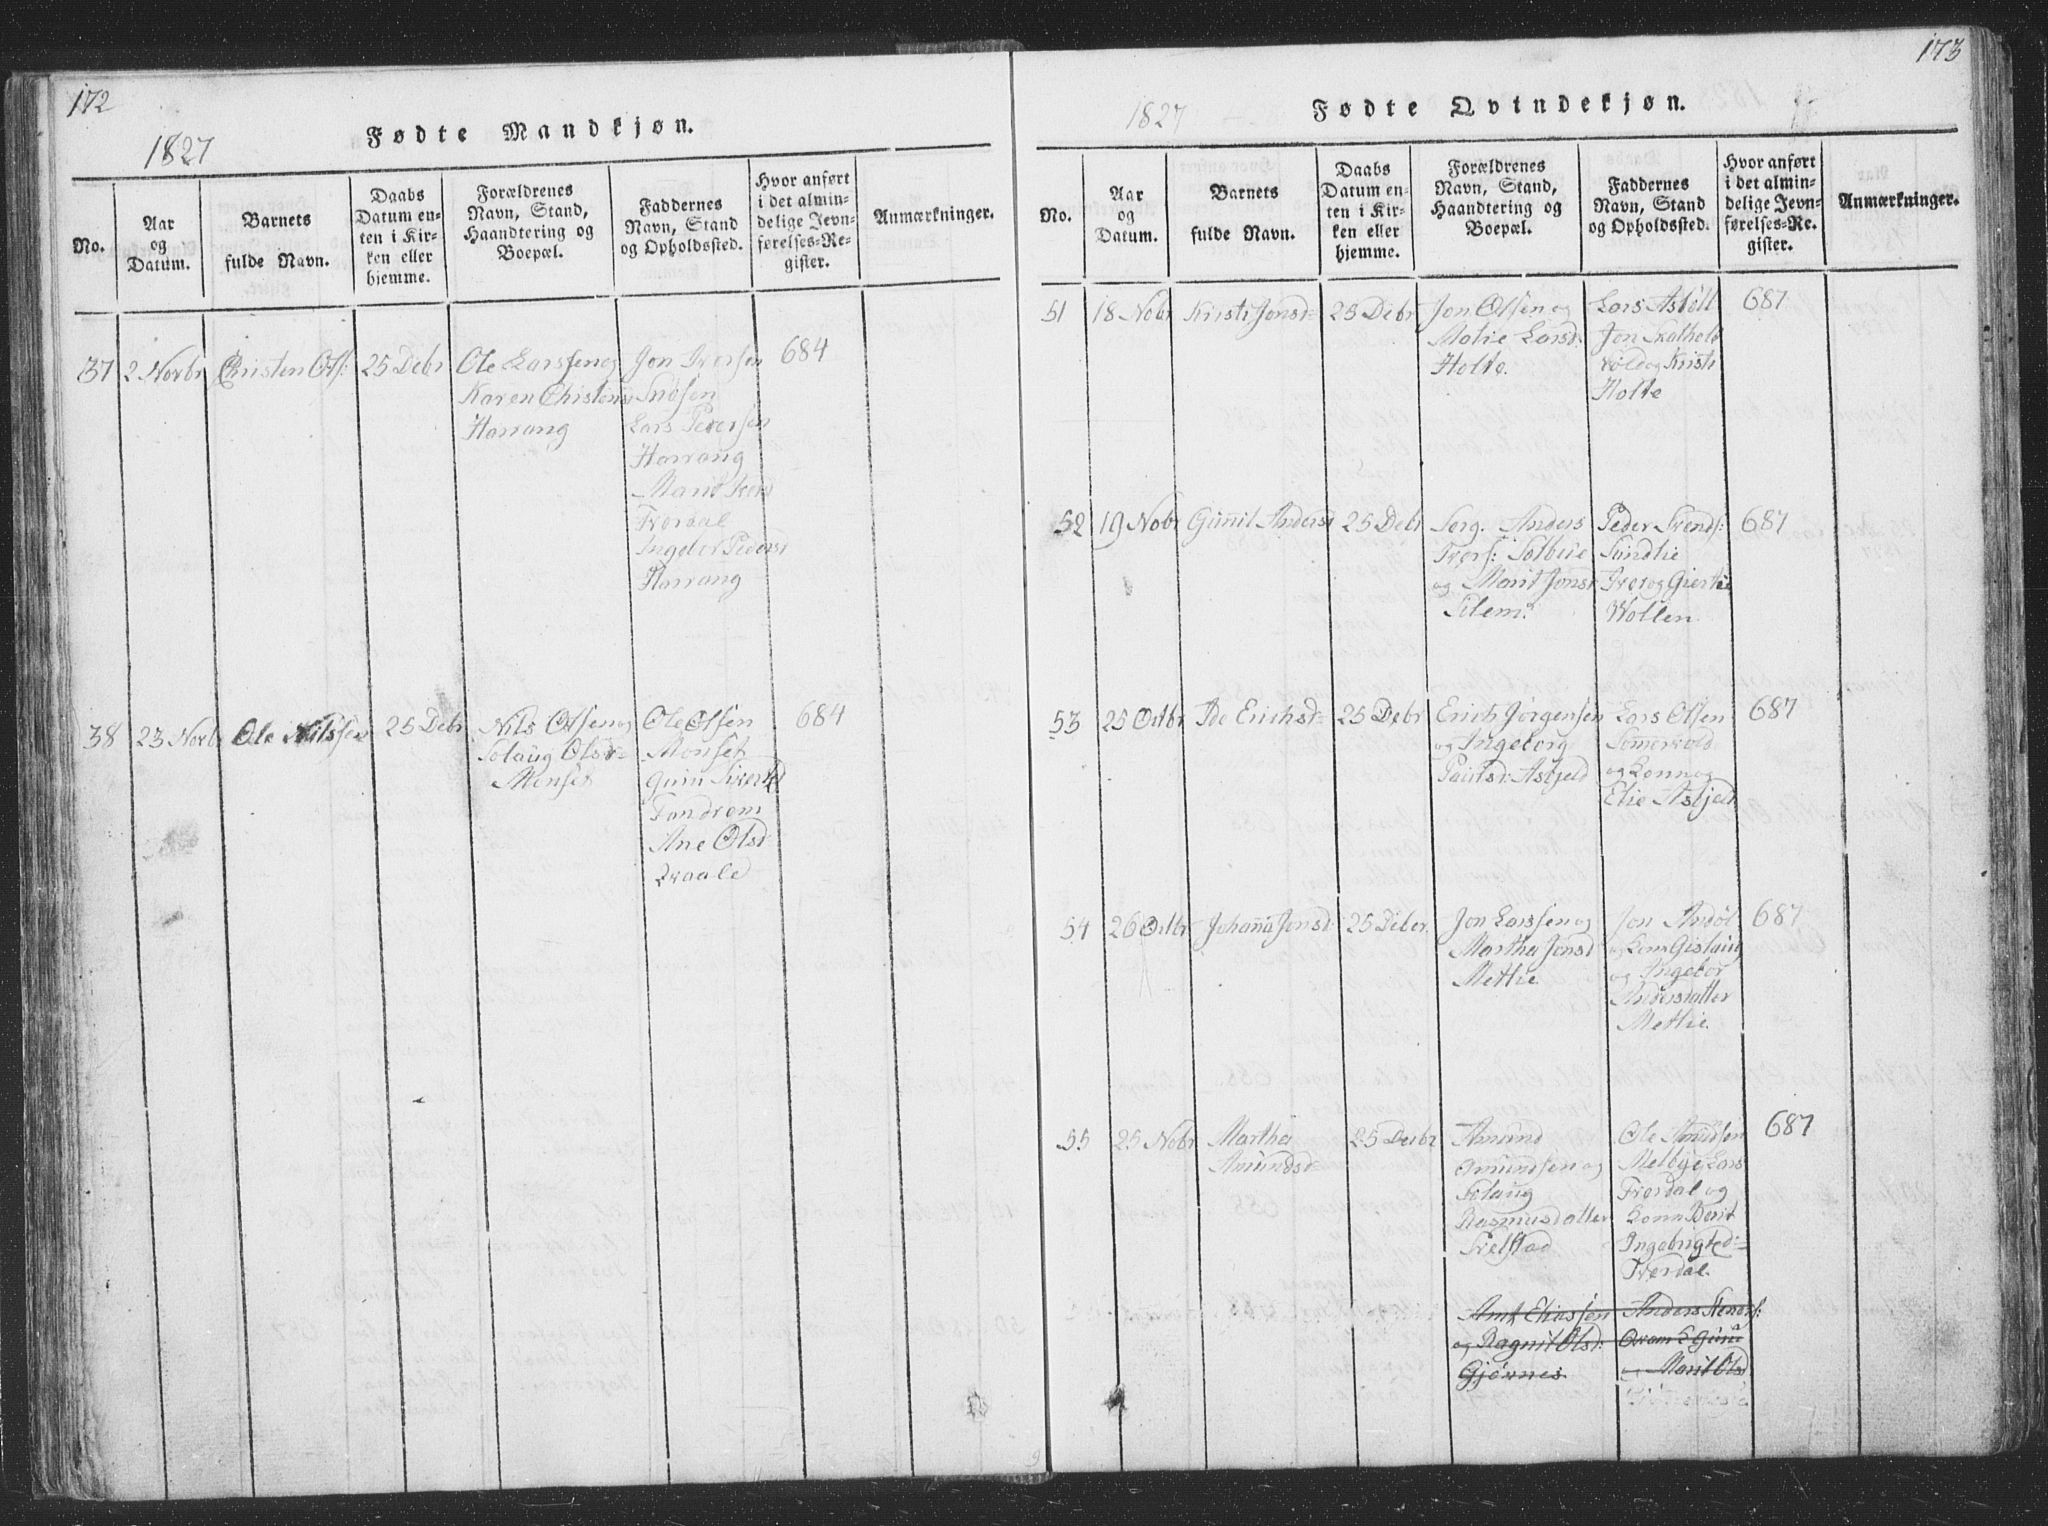 172
1827
Fødte Mandkjøn.
No.
Aar
og
Datum.
Barnets
fulde Navn.
Daabs
Datum en-
ten i Kir-
ken eller
hjemme.
Forældrenes
Navn, Stand,
Haandtering og
Boepæl.
Faddernes
Navn, Stand
og Opholdssted.
Hvor anført
i det almin-
delige Jevn-
førelses-Re-
gister.
Anmærkninger.
37
2 Novbr
Christen Ols:
25 Debr
Ole Larssen og
Karen Chistensd
Harrang
Jon Iversen
Lars Pedersen
Harrang
Marit
Iverdal
Ingebor Pedersd
Harrang
684
38
23 Novbr
Ole Nilssen
25 Debr
Nils Olsen og
Solaug Olsdr
Monset
Ole Olsen
Monset
Tondrem
Ane Olsdr
Qvaale
684
173
1827
Fødte Qvindekjøn.
No.
Aar
og
Datum.
Barnets
fulde Navn.
Daabs
Datum en-
ten i Kir-
ken eller
hjemme.
Forældrenes
Navn, Stand,
Haandtering og
Boepæl.
Faddernes
Navn, Stand
og Opholdssted.
Hvor anført
i det almin-
delige Jevn-
førelses-Re-
gister.
Anmærkninger.
51
18 Nobr
Kirsti Jonsdr
25 Debr
Jon Olsen og
Larsd:
Holte.
Lars Asbøll
Jon
og Kirsti
Holte
687
52
19 Nobr
Gunnil Andersd
25 Debr
Serg. Anders
Ivers: Solbeie
og Marit Jonsd
Silem.
Peder Svends:
Sundlie
Iver og Giertru
Wollen
687
53
25 Octbr
Ide Erichsdr
25 Debr
Erich Jørgensen
og Ingeborg
Paulsdr Astjeld
Lars Olsen
Somervold
og Kona og
Elie Astjeld
687
54
26 Octbr
Johanna Jonsd
25 Deber
Jon Larssen og
Martha Jonsd
Metlie
Jon Andøl
og Kona Gislaug
og Ingebor
Andersdatter
Metlie.
687
55
25 Nobr
Martha
Amundsdr
25 Decbr
Amund
Amundsen og
Solaug
Rasmusdatter
Svelstad
Ole Amundsen
Melbye Lars
Iverdal og
Kona Berit
Ingebrigtsd:
Iverdal.
687
Amt Eliassen
og Ragnil Olsd:
Gjørnes
Anders Svends:
og Marit Olsd